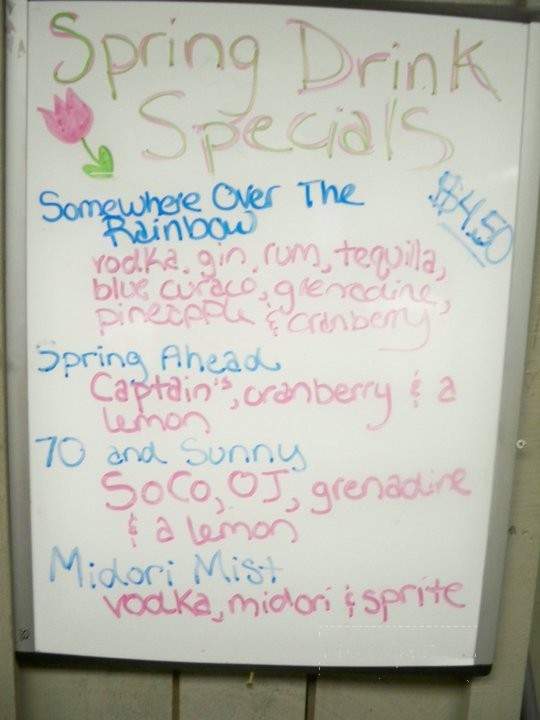 Spring Drink
Specials
$4.50
Somewhere Over The
Rainbow
vodka, gin, rum, tequilla,
blue curaco, grenadine,
pineapple & cranberry
Spring Ahead
Captain's, cranberry & a
lemon
70 and Sunny
SoCo, OJ, grenadine
& a lemon
Midori Mist
vodka, midori & sprite